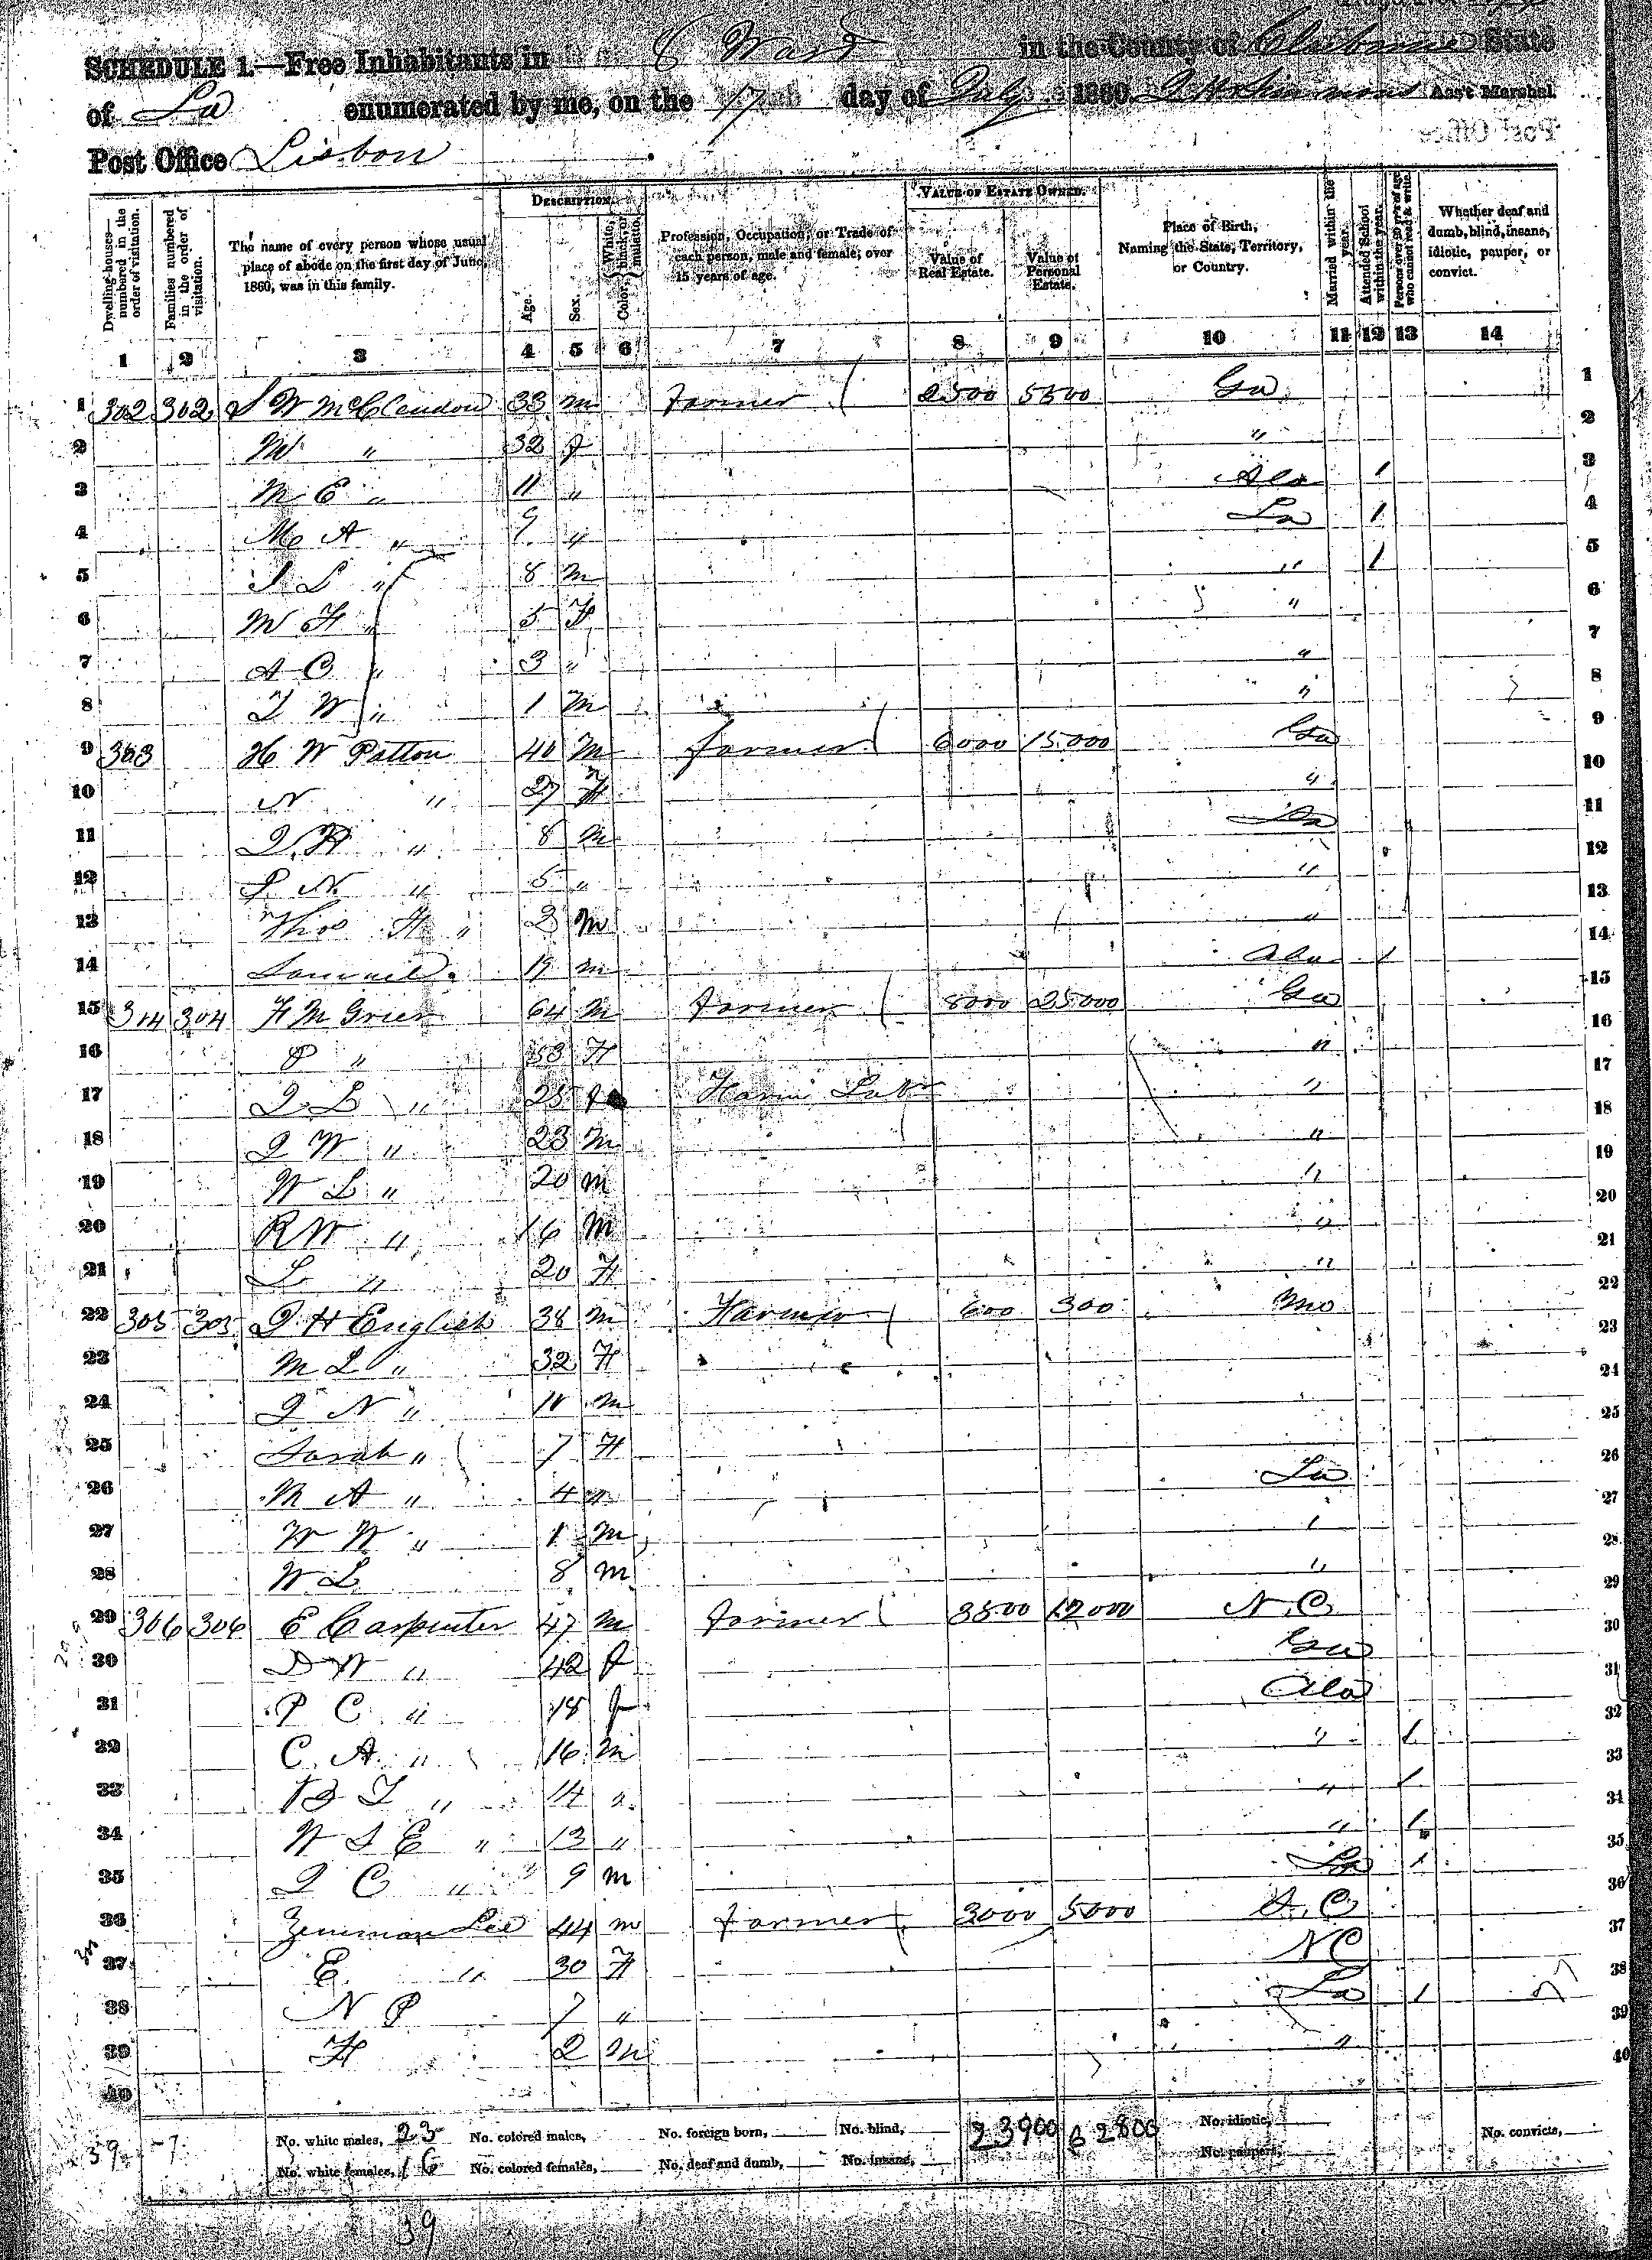 SCHEDULE 1.—Free Inhabitants in 6 Ward in the County of Claiborne State
of La enumerated by me, on the 17th day of July 1860. Ass't Marshal.
Post Office Lisbon
Dwelling-houses—numbered in the order of visitation.
Families numbered in the order of visitation.
The name of every person whose usual place of abode on the first day of June, 1860, was in this family.
DESCRIPTION.
Age.
Sex.
Color, { White, black, or mulatto.
Profession, Occupation, or Trade of each person, male and female, over 15 years of age.
VALUE OF ESTATE OWNED.
Value of Real Estate.
Value of Personal Estate.
Place of Birth, Naming the State, Territory, or Country.
Married within the year.
Attended School within the year.
Persons over 20 y'rs of age who cannot read & write.
Whether deaf and dumb, blind, insane, idiotic, pauper, or convict.
1 2 3 4 5 6 7 8 9 10 11 12 13 14
1 302 302 W McClendon 33 m Farmer 5500 Ga 1
2 M " 32 f " 2
3 M E " 11 " Ala 1 3
4 M A " 9 " La 1 4
5 L " 8 m " 1 5
6 M F " 5 F " 6
7 A C " 3 " " 7
8 W " 1 M " 8
9 303 H W Patton 40 M Farmer 6000 15000 Ga 9
10 N " 27 F " 10
11 " 8 M La 11
12 N " 5 " " 12
13 Thos H " 2 M " 13
14 Samuel 19 m Ala 1 14
15 304 304 F M Grier 64 M Farmer 8000 25000 Ga 15
16 P " 53 F " 16
17 J L " 25 Farm " 17
18 J W " 23 M " 18
19 W L " 20 M " 19
20 R W " 16 M " 20
21 L " 20 F " 21
22 305 305 J H English 38 m Farmer 600 300 Mo 22
23 M L " 32 F 23
24 J N " m 24
25 Sarah " 7 F 25
26 M A " 4 La 26
27 W W " 1 M " 27
28 W L 8 m " 28
29 306 306 E Carpenter 47 m Farmer 3500 12000 N.C. 29
30 D W " 42 f Ga 30
31 P C " 18 f Ala 31
32 C. A. " 16 m " 1 32
33 B " 14 " " 1 33
34 W S E " 13 " " 1 34
35 J C " 9 m La 1 35
36 Lee 44 m Farmer 3000 5000 C 36
37 E. " 30 F NC 37
38 N P 7 " La 1 38
39 F 2 M " 39
40 40
39 7 No. white males, 23 No. colored males, No. foreign born, No. blind, 23900 62800 No. idiotic, No. convicts,
No. white females, 16 No. colored females, No. deaf and dumb, No. insane, No. paupers,
39